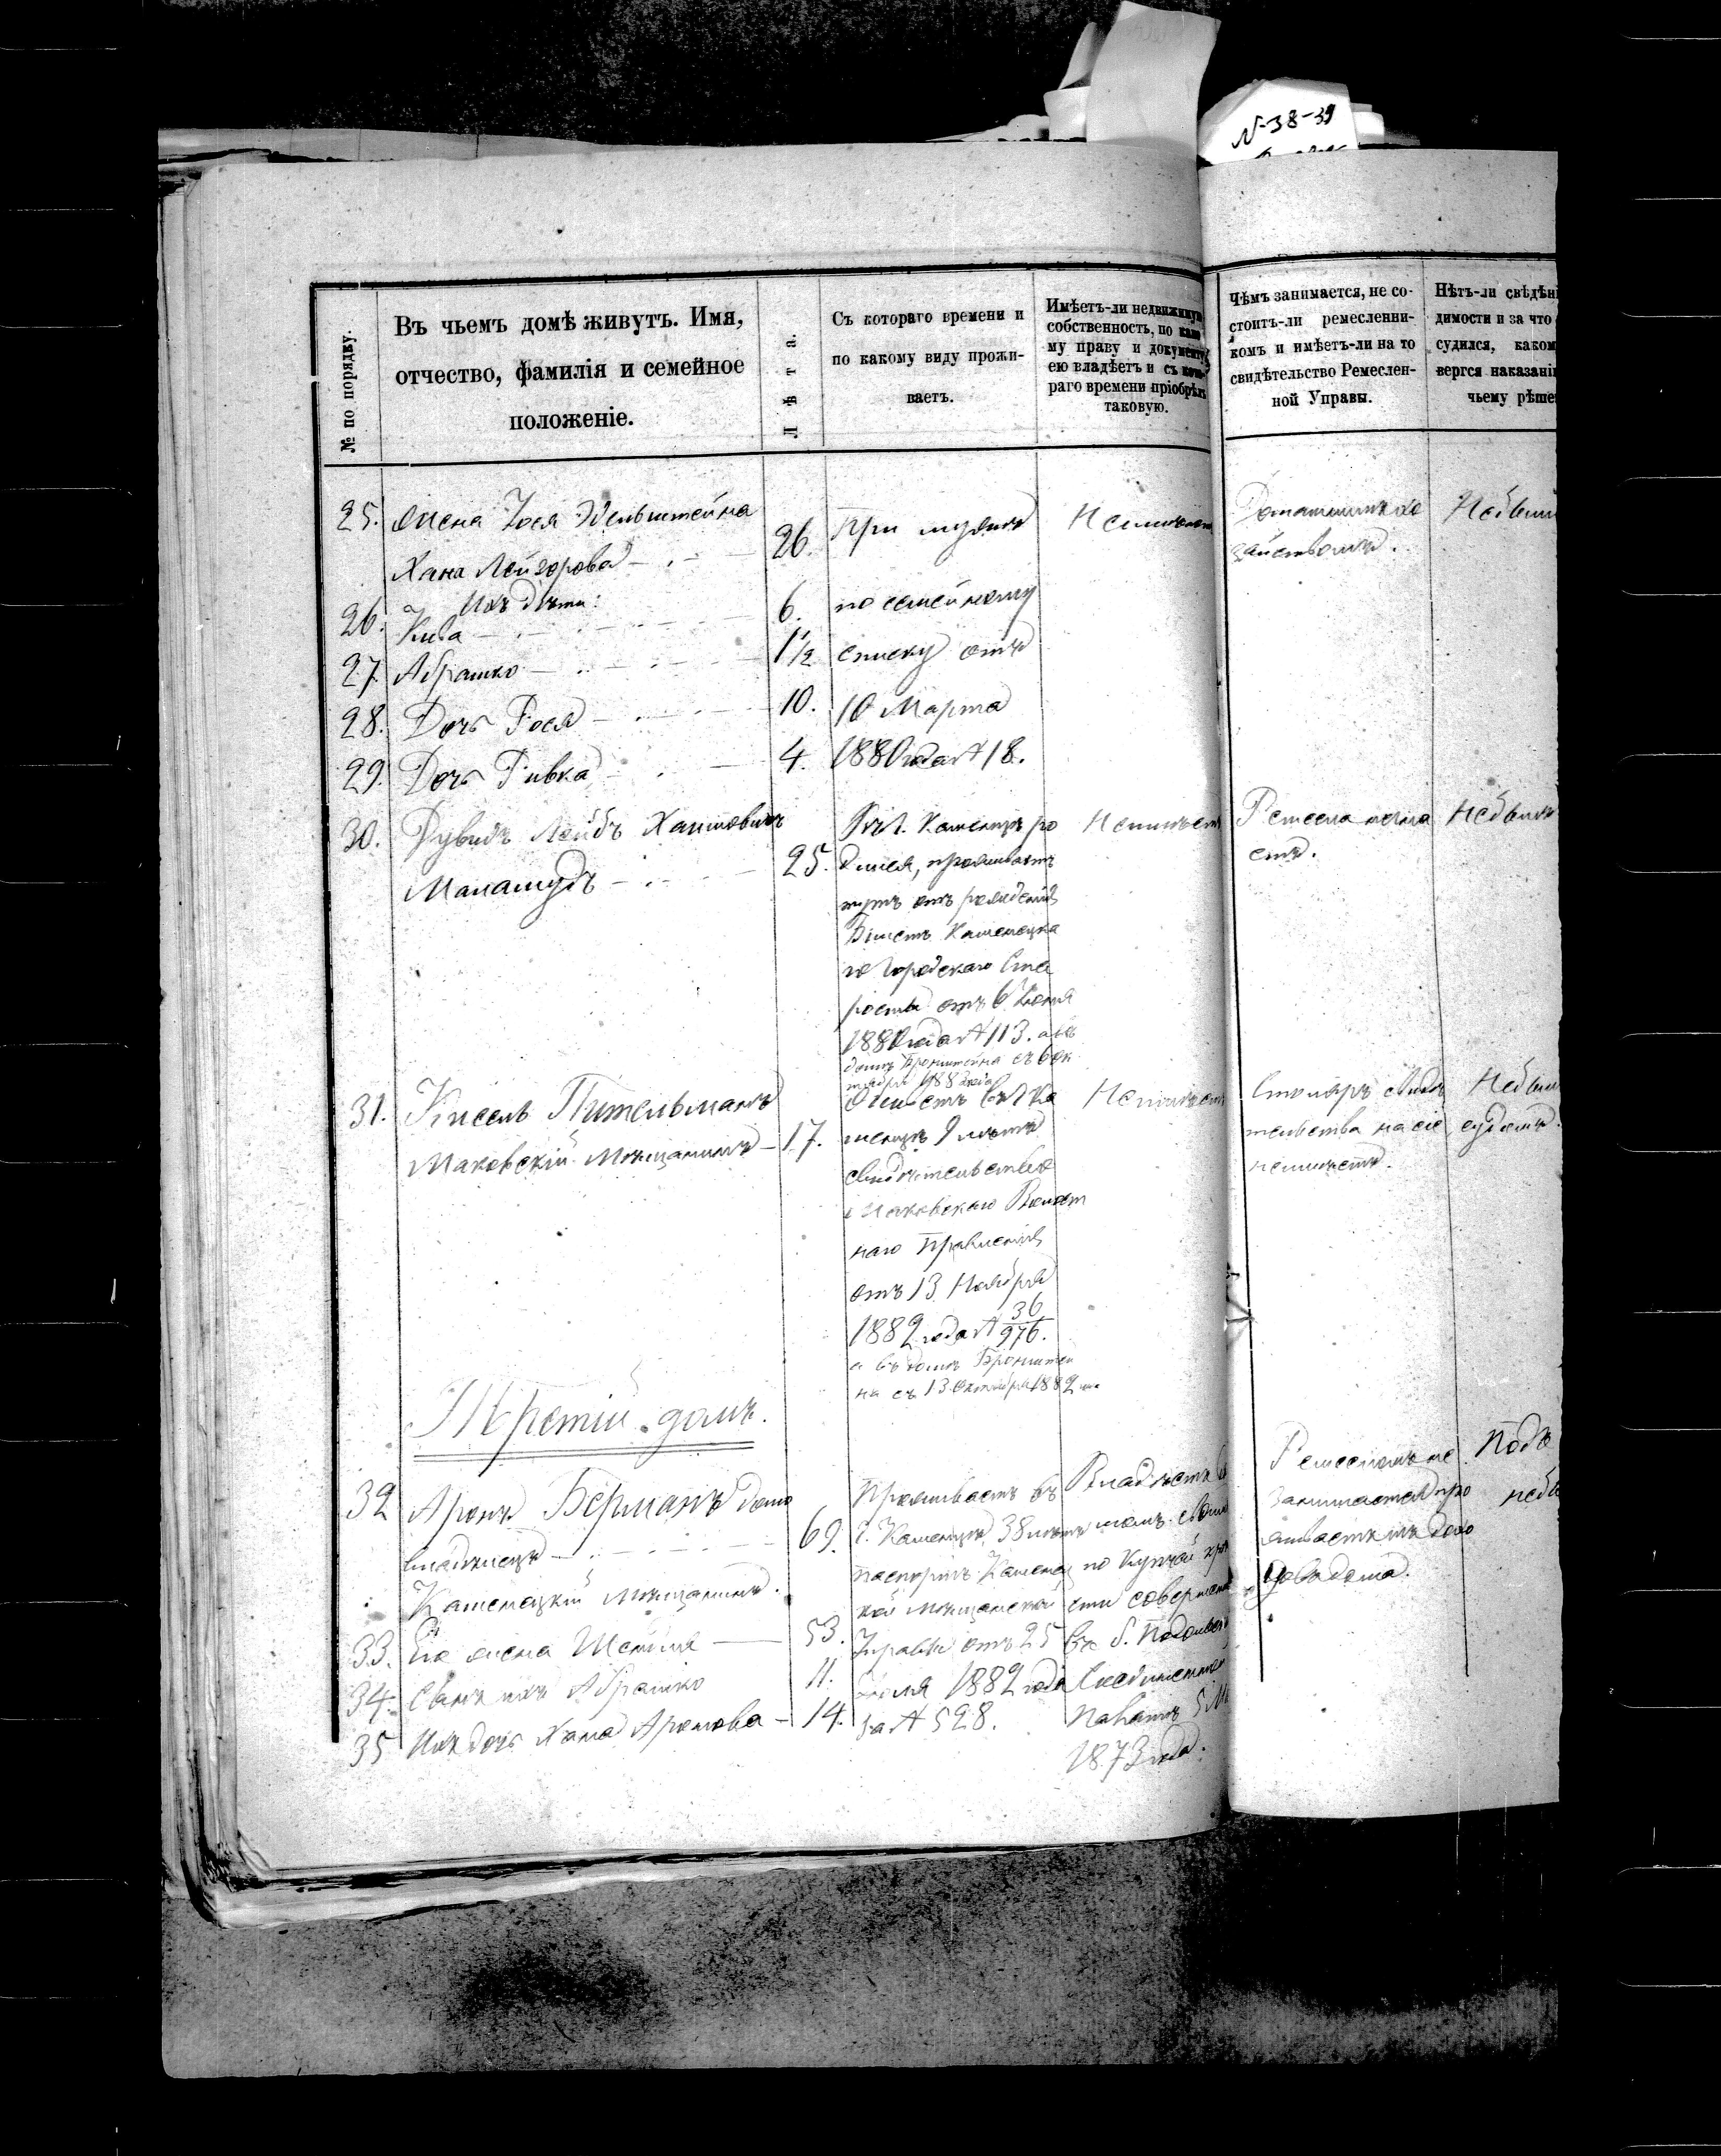 N-38-39
№ по порядку.
Въ чьемъ домѣ живутъ. Имя,
отчество, фамилія и семейное
положеніе.
Лѣта.
Съ котораго времени и
по какому виду прожи-
ваетъ.
Имѣетъ-ли недвижимую
собственность, по како
му праву и документу
ею владѣетъ и съ кото-
раго времени пріобрѣлъ
таковую.
Чѣмъ занимается, не со-
стоитъ-ли ремесленни-
комъ и имѣетъ-ли на то
свидѣтельство Ремеслен-
ной Управы.
Нѣтъ-ли свѣдѣні
димости и за что
судился, каком
вергся наказані
чьему рѣше
25. Жена Іося Эдельштейна
Хана Лейзорова 26. При мужѣ Неимѣетъ
Домашнимъ хо
зяйствомъ.
Ихъ дѣти:
26. Кива 6. по семейному
27. Абрашко 1½ списку отъ
28. Дочь Рося 10. 10 Марта
29. Дочь Ривка 4. 1880 года № 18.
30. Дувидъ Лейбъ Хаимовичъ
Маламудъ 25.
Въ г. Каменцѣ ро
дился, проживаетъ
тутъ отъ рожденія
Билетъ Каменецка
го Городскаго Ста
росты отъ 6 Іюня
1882 года № 113. а въ
домѣ Бронштейна съ 6 Ок
тября 1882 года
Неимѣетъ
31. Кисель Тительманъ
Маковскій мѣщанинъ 17.
Живетъ въ г. Ка
менцѣ 9 лѣтъ
свидѣтельство
Маковскаго Волост
наго Правленія
отъ 13 Ноября
1882 года № 36
976.
а въ домѣ Бронштей
на съ 13 Октября 1882
Неимѣетъ
Столяръ свидѣ
тельства на сіе
неимѣетъ.
судомъ.
Третій домъ.
32 Аронъ Берманъ домо
владѣлецъ 69.
Каменецкій мѣщанинъ.
Проживаетъ въ
г. Каменцѣ 38 лѣтъ
паспортъ Каменец
кой мѣщанской
Управы отъ 25
Іюля 1882 года
за № 528.
Владѣетъ
домъ свой
по Купчей крѣ
сти совершен
въ б. Подольск
Соединенной
Палатѣ 5 М
1873 года.
Ремесломъ не
занимается про
живаетъ изъ дохо
довъ дома.
33. Его жена Шейндля 53.
34. Сынъ ихъ Абрашко 11.
35 Ихъ дочь Хана Аронова 14.